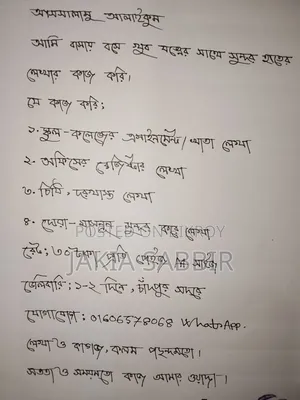 আসসালামু আলাইকুম
আমি বাসায় বসে খুব যত্নের সাথে সুন্দর হাতের
লেখার কাজ করি।
যে কাজ করি:
১. স্কুল-কলেজের এসাইনমেন্ট/খাতা লেখা
২. অফিসের রেজিস্টার লেখা
৩. চিঠি, দরখাস্ত লেখা
৪. দোয়া- সুন্দর করে লেখা
POSTED ON BIKROY
রেট: ৩০ টাকা প্রতি পেইজ
JAKIA SABBIR
ডেলিভারি: ১-২ দিন, চাঁদপুর সদরে
যোগাযোগ: 01606578068 WhatsApp.
লেখা ও কাগজ, কলম পছন্দমতো।
সততা ও সময়মতো কাজ আমার ওয়াদা।